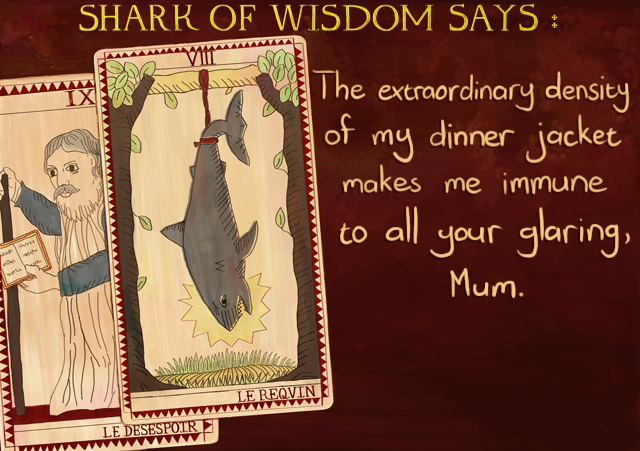 SHARK OF WISDOM SAYS :
The extraordinary density
of my dinner jacket
makes me immune
to all your glaring,
Mum.
IX
LE DESESPOIR
VIII
LE REQVIN